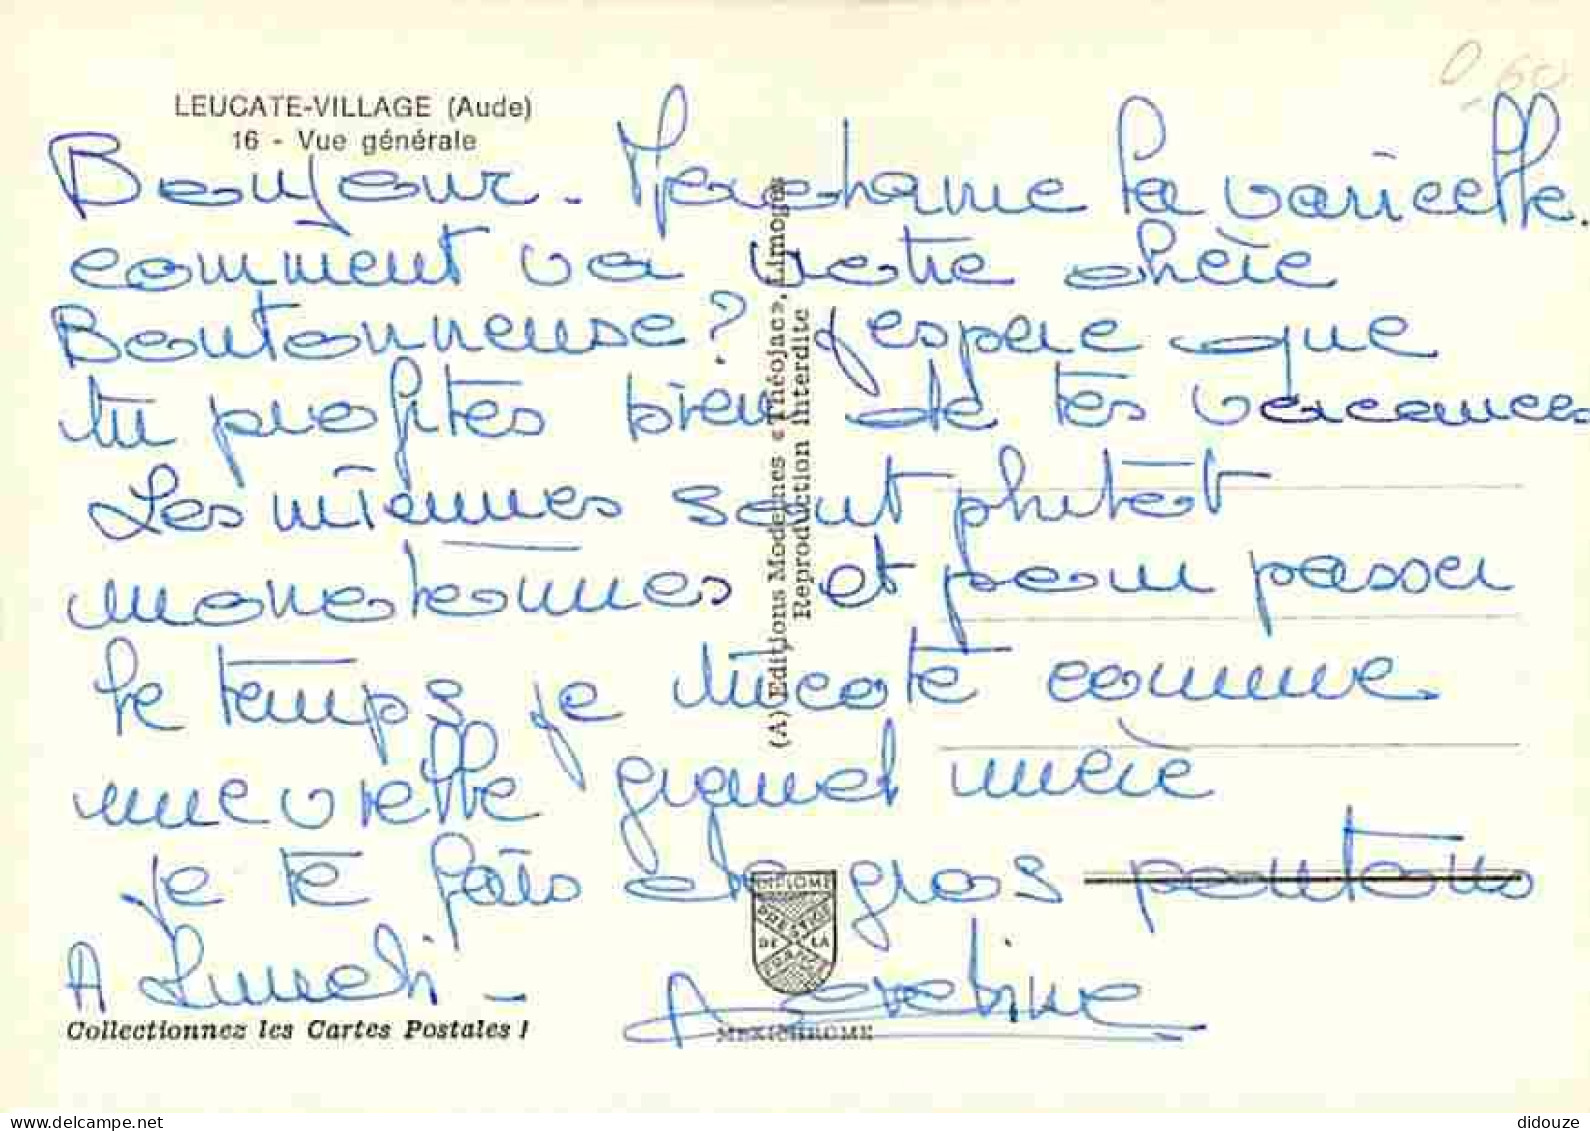 0,60
LEUCATE-VILLAGE (Aude)
16 - Vue générale
Bonjour - Madame la varicelle.
comment va votre chère
Boutonneuse? j'espère que
tu profites bien de tes vacances
Les miennes sont plutôt
monotonnes et pour passer
le temps je tricote comme
une vieille grand mère
je te fais de gros poutous
A Lundi -
(A) Editions Modernes «Théojac», Limoges
Reproduction interdite
DIPLOME
PRESTIGE
DE LA
FRANCE
Collectionnez les Cartes Postales !
MEXICHROME
didouze